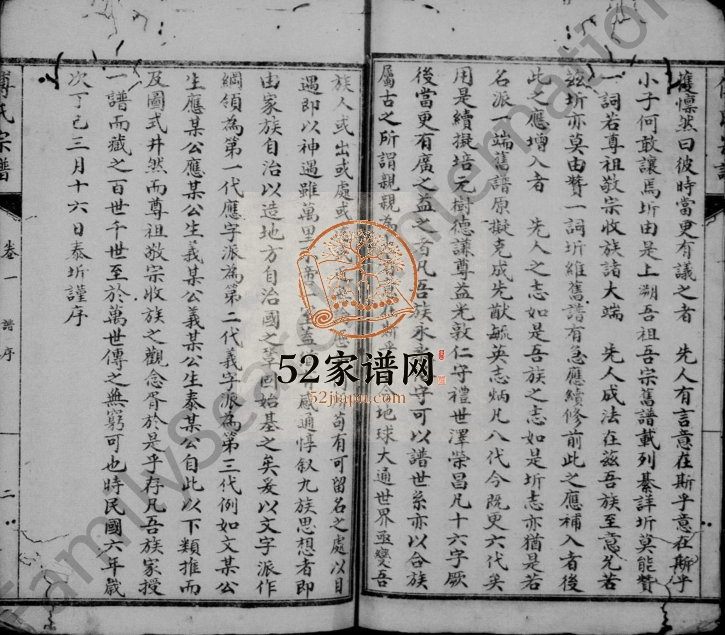 蘧懍然曰彼時當更有議之者　先人有言意在斯乎意在斯乎
小子何敢讓焉圻由是上溯吾祖吾宗舊譜載列綦詳圻莫能贊
一詞若尊祖敬宗收族諸大端　先人成法在茲吾族至意允若
茲圻亦莫由贊一詞圻維舊譜有急應續修前此之應補入者後
此之應增入者　先人之志如是吾族之志如是圻志亦猶是若
名派一端舊譜原擬克成先猷毓英志炳凡八代今既更六代矣
用是續擬培元樹德謙尊益光敦仁守禮世澤榮昌凡十六字厥
後當更有廣之益之者凡吾族永 守可以譜世系亦以合族
屬古之所謂親親為 地球大通世界亟變吾
族人或出或處或 苟有可留名之處以目
遇即以神遇雖萬里 感通惇叙九族思想者即
由家族自治以造地方自治國之 固始基之矣爰以文字派作
綱領為第一代應字派為第二代義字派為第三代例如文某公
生應某公應某公生義某公義某公生泰某公自此以下類推而
及圖式井然而尊祖敬宗收族之觀念胥於是乎存凡吾族家授
一譜而藏之百世千世至於萬世傳之無窮可也時民國六年歲
次丁巳三月十六日泰圻謹序
氏宗譜
卷一
譜序
二
52家谱网
52jiapu.com
FamilySearch International